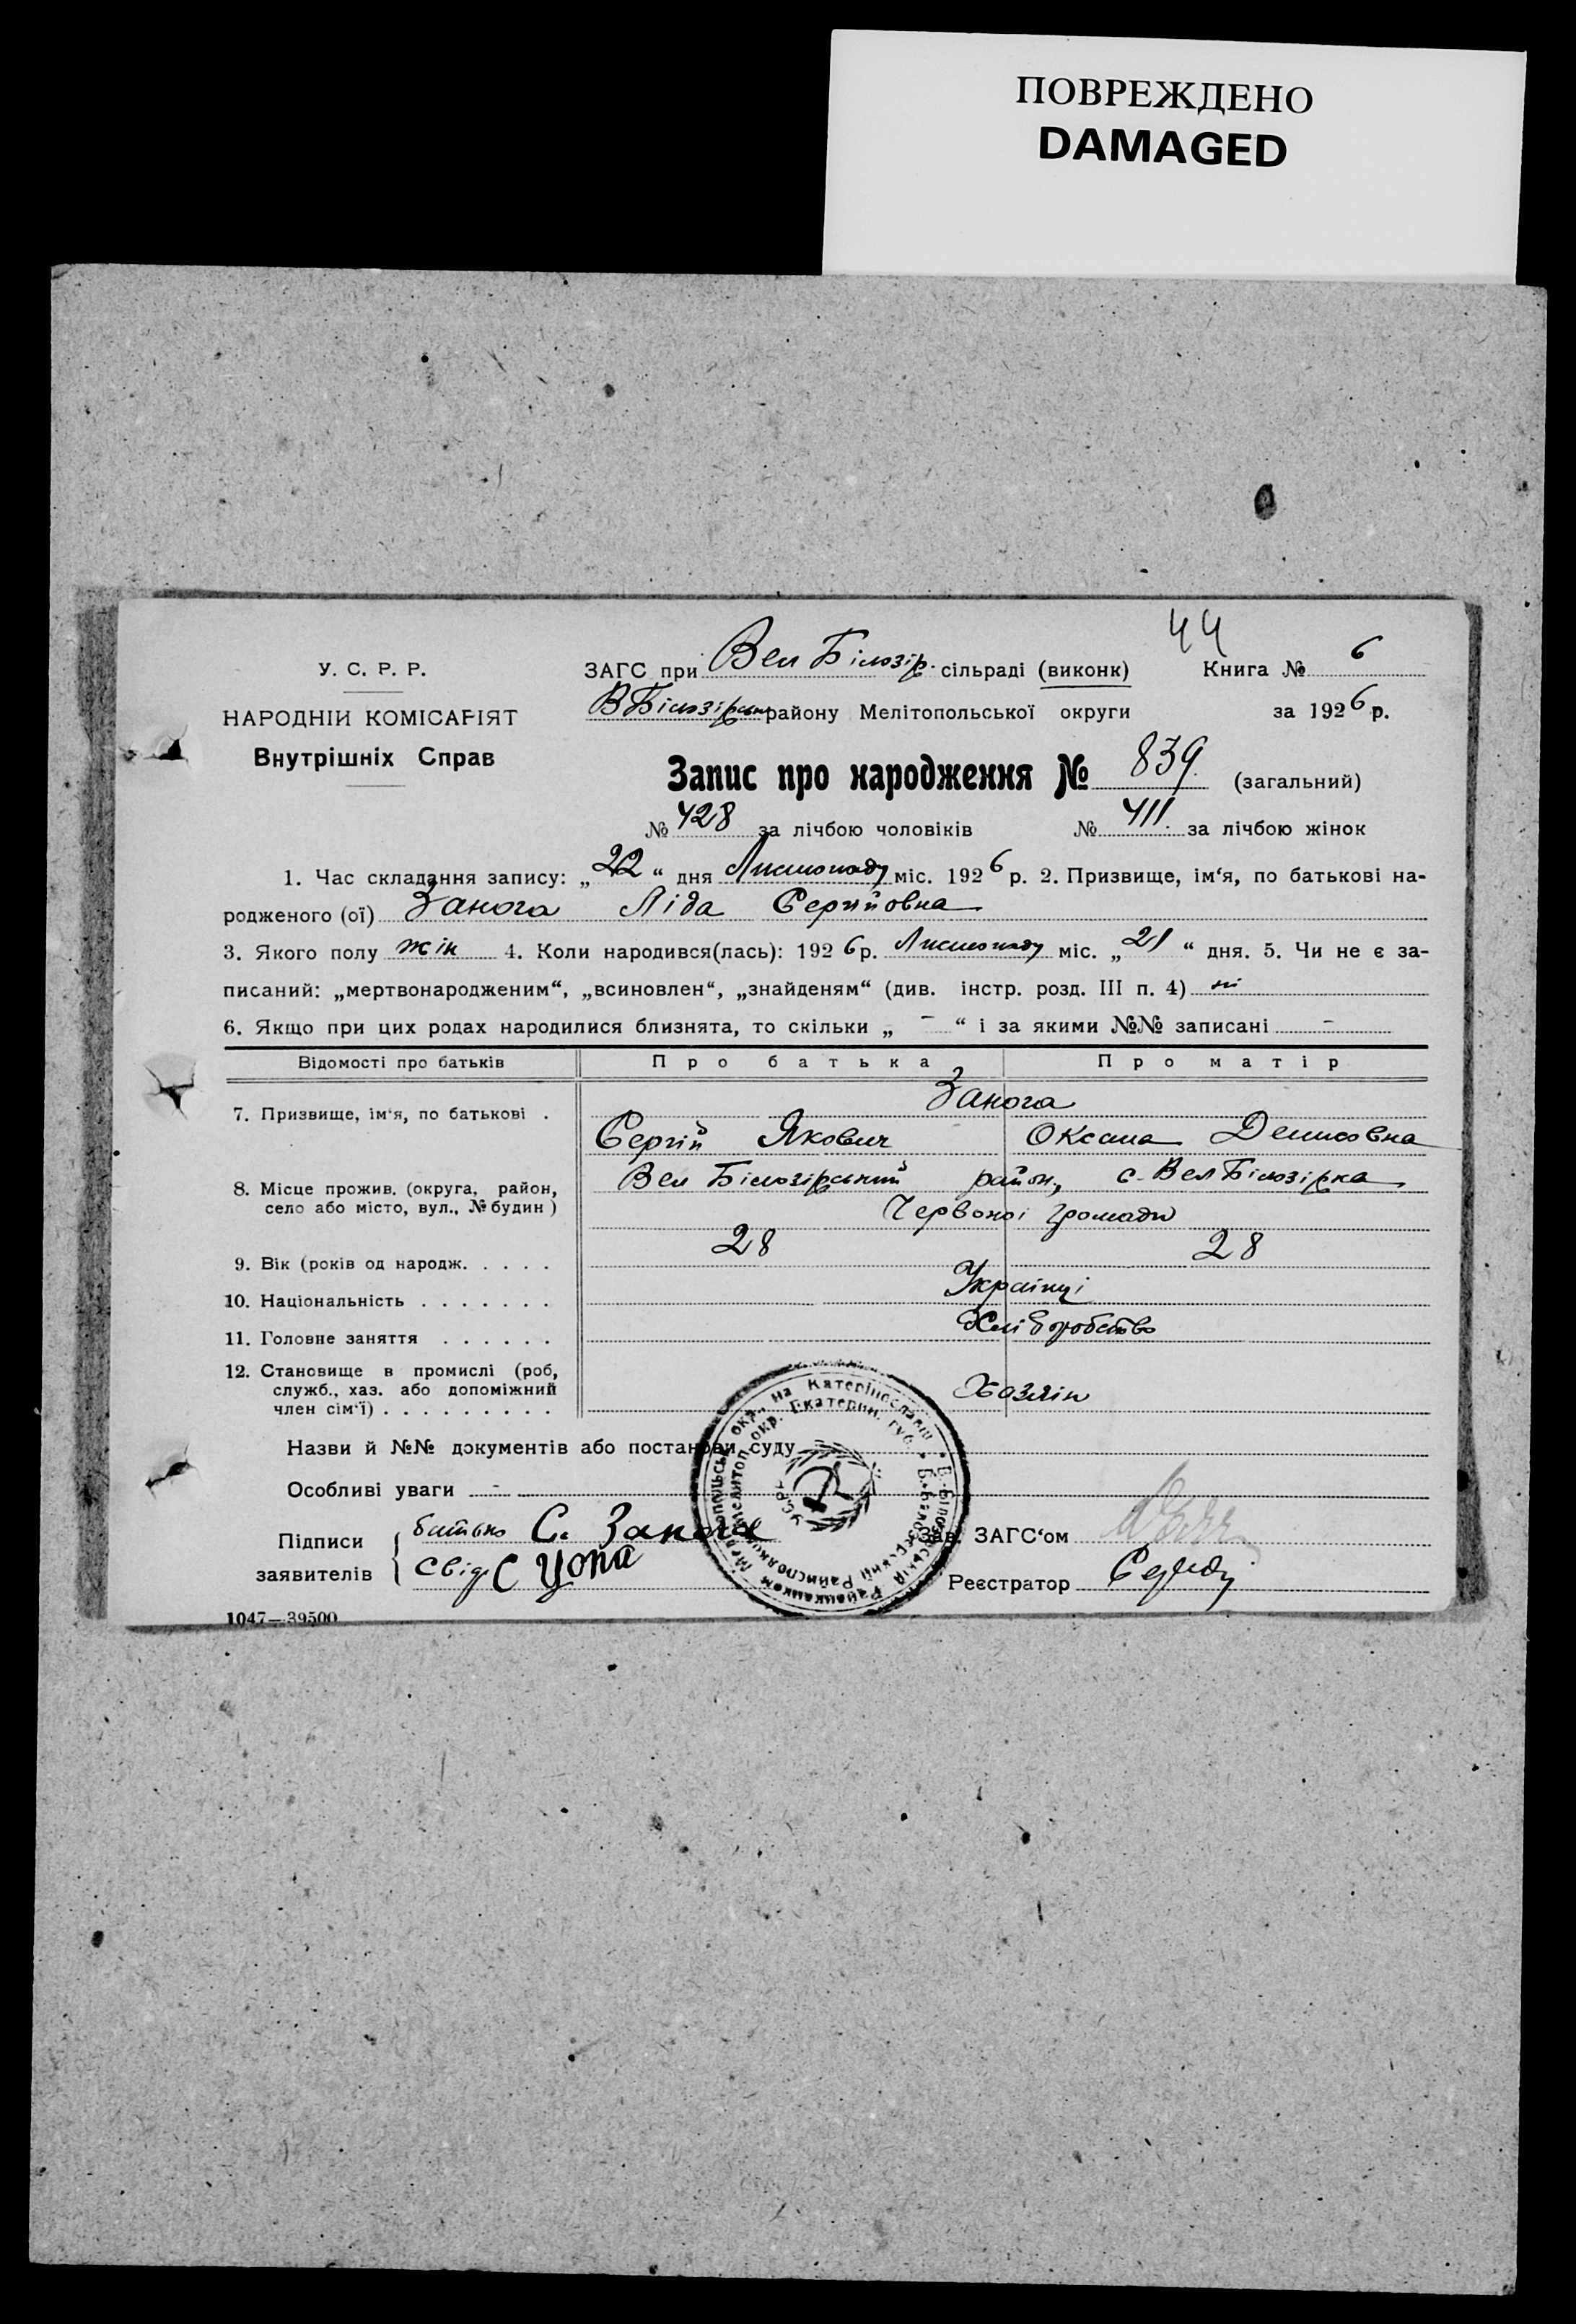 ПОВРЕЖДЕНО
DAMAGED
44
У. С. Р. Р.
НАРОДНІЙ КОМІСАРІЯТ
Внутрішніх Справ
ЗАГС при Вел Білозір. сільраді (виконк) Книга № 6
ВБілозірськ району Мелітопольської округи за 1926 р.
Запис про народження № 839. (загальний)
№ 428 за лічбою чоловіків № 411. за лічбою жінок
1. Час складання запису: „22“ дня Листопаду міс. 1926 р. 2. Призвище, ім‘я, по батькові на-
родженого (ої) Занога Ліда Сергійовна
3. Якого полу жін 4. Коли народився(лась): 1926 р. Листопаду міс. „21“ дня. 5. Чи не є за-
писаний: „мертвонародженим“, „всиновлен“, „знайденям“ (див. інстр. розд. III п. 4) ні
6. Якщо при цих родах народилися близнята, то скільки „ - “ і за якими №№ записані -
Відомості про батьків Про батька Про матір
7. Призвище, ім‘я, по батькові . Занога
Сергій Якович Оксана Денисовна
8. Місце прожив. (округа, район, село або місто, вул., № будин) Вел Білозірський район, с. Вел Білозірка
Червоної громади
9. Вік (років од народж. . . . . 28 28
10. Національність . . . . . . . Українці
11. Головне заняття . . . . . . Хліборобство
12. Становище в промислі (роб, служб., хаз. або допоміжний член сім‘ї) . . . . . . . . . Хозяїн
Назви й №№ документів або постанови суду
Особливі уваги -
Підписи заявителів { батько С. Занога
свід. С Цопа
Зав. ЗАГС‘ом
Реєстратор
1047—39500